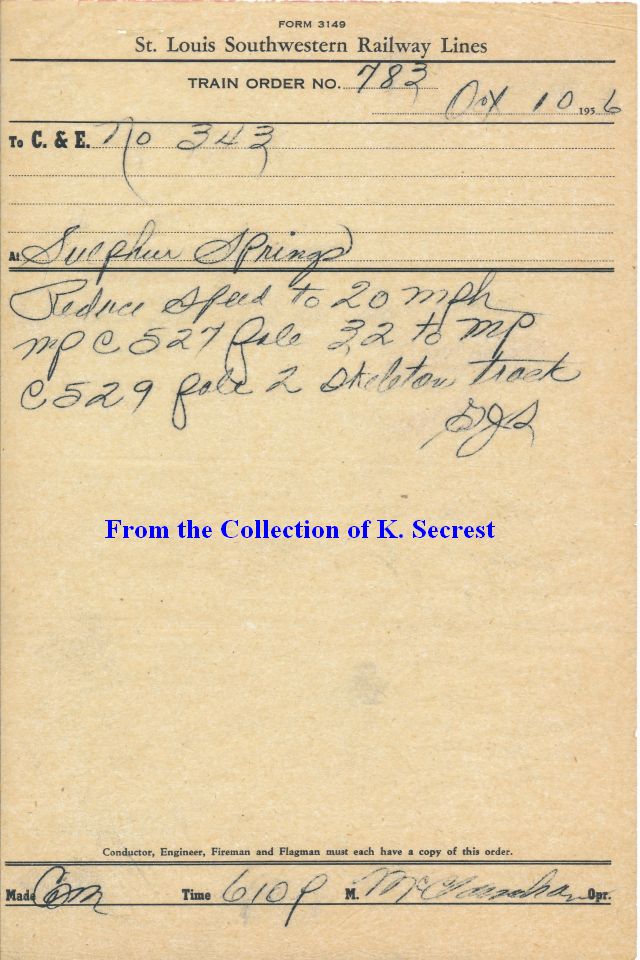 FORM 3149
St. Louis Southwestern Railway Lines
TRAIN ORDER NO. 783
Oct 10 1956
To C. & E. No 343
At Sulphur Springs
Reduce speed to 20 mph
mp C 527 pole 32 to mp
C 529 pole 2 skeleton track
GJS
From the Collection of K. Secrest
Conductor, Engineer, Fireman and Flagman must each have a copy of this order.
Made Com Time 610 P M. Opr.